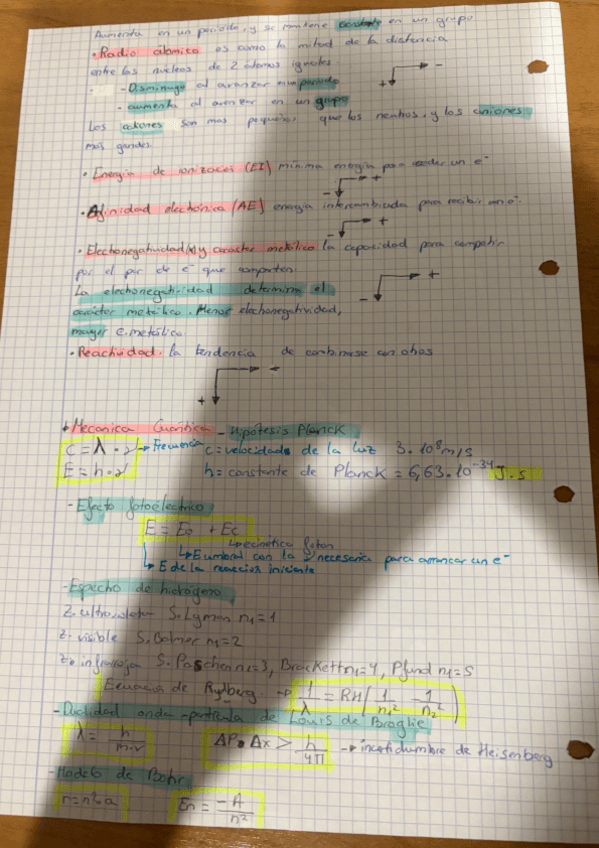 Aumenta en un periodo, y se mantiene constante en un grupo
• Radio atómico es como la mitad de la distancia
entre los núcleos de 2 átomos iguales.
- Disminuye al avanzar en un periodo
- aumenta al avanzar en un grupo
Los cationes son mas pequeños que los neutros, y los aniones
más grandes.
• Energía de ionización (EI) mínima energía para ceder un e⁻
• Afinidad electrónica (AE) energía intercambiada para recibir un e⁻.
• Electronegatividad(x) y caracter metálico la capacidad para competir
por el par de e⁻ que comparten
La electronegatividad determina el
carácter metálico. Menor electronegatividad,
mayor c. metálico
• Reactividad. la tendencia de combinarse con otros
• Mecanica Cuantica - Hipótesis Planck
C = λ · ν → Frecuencia c = velocidad de la luz 3·10⁸ m/s
E = h · ν h = constante de Planck = 6,63·10⁻³⁴ J·s
- Efecto fotoeléctrico
E = E₀ + Ec
↳ E umbral con la necesaria para arrancar un e⁻
↳ E de la
- Espectro de hidrógeno
Z. ultravioleta S. Lyman n₁ = 1
Z. visible S. Balmer n₁ = 2
Z. infrarroja S. Paschen n₁ = 3, Brackett n₁ = 4, Pfund n₁ = 5
Ecuación de Rydberg → 1/λ = RH(1/n₁² - 1/n₂²)
- Dualidad onda-partícula de Louis de Broglie
λ = h/m·v ΔP · Δx > h/4π → incertidumbre de Heisenberg
- Modelo de Bohr
r = n²·a En = -A/n²